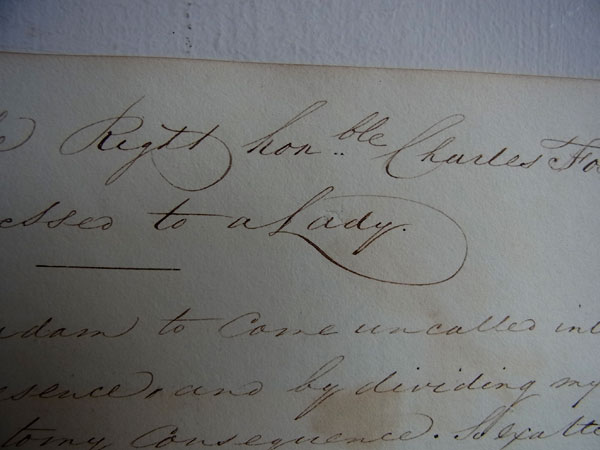 Right hon.ble Charles Fo
essed to a Lady.
adam to Come uncalled int
esence, and by dividing my
tomy Consequence.